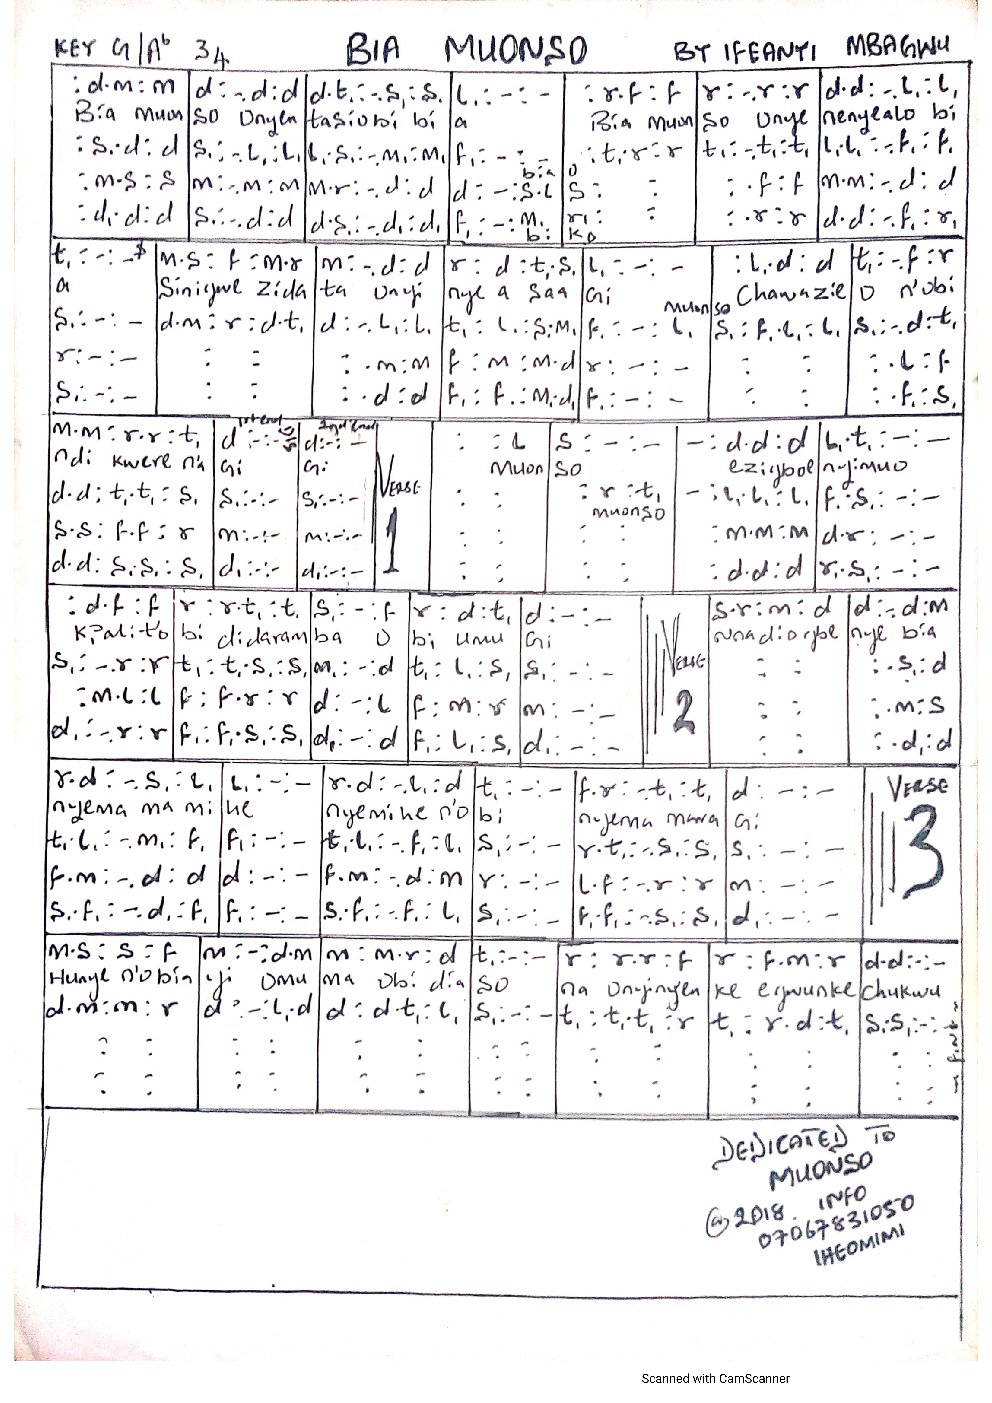 KEY G/Ab 34 BIA MUONSO BY IFEANYI MBAGWU
: d.m : m | d : -.d : d | d.t, : -.s, : s, | l, : - : - | : r.f : f | r : -.r : r | d.d : -.l, : l,
Bia Muon | so Unyen | tasiobi bi | a | Bia Muon | so Unye | nenyealo bi
: s,.d : d | s, : -.l, : l, | l,.s, : -.m, : m, | f, : - : - | : t,.r : r | t, : -.t, : t, | l,.l, : -.f, : f,
bia | o
: m.s : s | m : -.m : m | m.r : -.d : d | d : - : s.l | s : : | : .f : f | m.m : -.d : d
: d,.d : d | s, : -.d : d | d.s, : -.d, : d, | f, : - : m, | r, : : | : .r : r | d.d : -.f, : r,
bi | ko
t, : - : - | m.s : f : m.r | m : -.d : d | r : d : t,.s, | l, : - : - | : l,.d : d | t, : -.f : r
a | Sinigwe Zida | ta Unyi | nye a Saa | Gi | Muonso Chawazie | O n'obi
s, : - : - | d.m : r : d.t, | d : -.l, : l, | t, : l, : s,.m, | f, : - : l, | s, : f,.l, : l, | s, : -.d : t,
r : - : - | : : | : .m : m | f : m : m.d | r : - : - | : : | : .l : f
s, : - : - | : : | : .d : d | f, : f, : m,.d, | f, : - : - | : : | : .f, : s,
1st end | 2nd end
m.m : r.r : t, | d : - : - | d : - : - | VERSE 1 | : : l | s : - : - | - : d.d : d | l,.t, : - : -
ndi kwere n'a | Gi | Gi | Muon | so | ezigboe | nyimuo
d.d : t,.t, : s, | s, : - : - | s, : - : - | : : | : r : t, | - : l,.l, : l, | f,.s, : - : -
muonso
s.s : f.f : r | m : - : - | m : - : - | : : | : : | : m.m : m | d.r : - : -
d.d : s,.s, : s, | d, : - : - | d, : - : - | : : | : : | : d.d : d | r,.s, : - : -
: d.f : f | r : r.t, : t, | s, : - : f | r : d : t, | d : - : - | VERSE 2 | s.r : m : d | d : -.d : m
kpali-t'o | bi didaram | ba O | bi umu | Gi | nnadiogbe | nye bia
s, : -.r : r | t, : t,.s, : s, | m, : - : d | t, : l, : s, | s, : - : - | : : | : .s, : d
: m.l : l | f : f.r : r | d : - : l | f : m : r | m : - : - | : : | : .m : s
d, : -.r : r | f, : f,.s, : s, | d, : - : d | f, : l, : s, | d, : - : - | : : | : .d, : d
r.d : -.s, : l, | l, : - : - | r.d : -.l, : d | t, : - : - | f.r : -.t, : t, | d : - : - | VERSE 3
nyema ma mi | he | nyemihe n'o | bi | nyema mara | Gi
t,.l, : -.m, : f, | f, : - : - | t,.l, : -.f, : l, | s, : - : - | r.t, : -.s, : s, | s, : - : -
f.m : -.d : d | d : - : - | f.m : -.d : m | r : - : - | l.f : -.r : r | m : - : -
s.f, : -.d, : f, | f, : - : - | s.f, : -.f, : l, | s, : - : - | f,.f, : -.s, : s, | d, : - : -
m.s : s : f | m : - : d.m | m : m.r : d | t, : - : - | r : r.r : f | r : f.m : r | d.d : - : -
Hunye n'obia | yi Omu | ma Obi dia | so | na Onyinyen | ke egwunke | Chukwu
d.m : m : r | d : - : l,.d | d : d.t, : l, | s, : - : - | t, : t,.t, : r | t, : r.d : t, | s,.s, : - : -
: : | : : | : : | : : | : : | : : | : :
: : | : : | : : | : : | : : | : : | : :
DEDICATED TO
MUONSO
@2018. INFO
07067831050
IHEOMIMI
Scanned with CamScanner